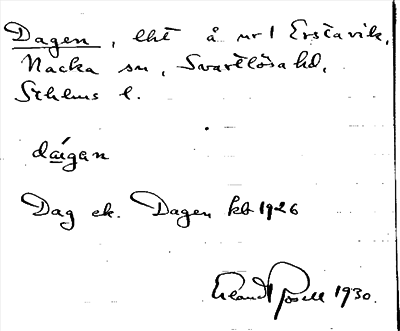 Dagen, lht å nr 1 Erstavik,
Nacka sn, Svartlösa hd,
Sthlms l.
dágan
Dag ek. Dagen kb 1926
Erland Rosell 1930.